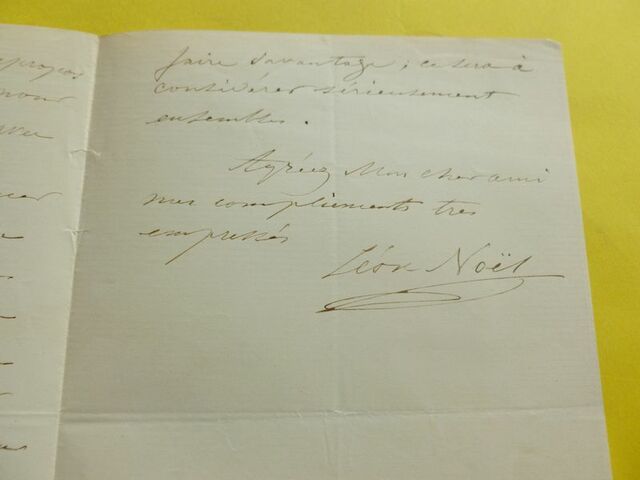 faire davantage ; ce sera à
considérer sérieusement
ensembles.
Agréez Mon cher ami
mes compliements tres
empressés
Léon Noël